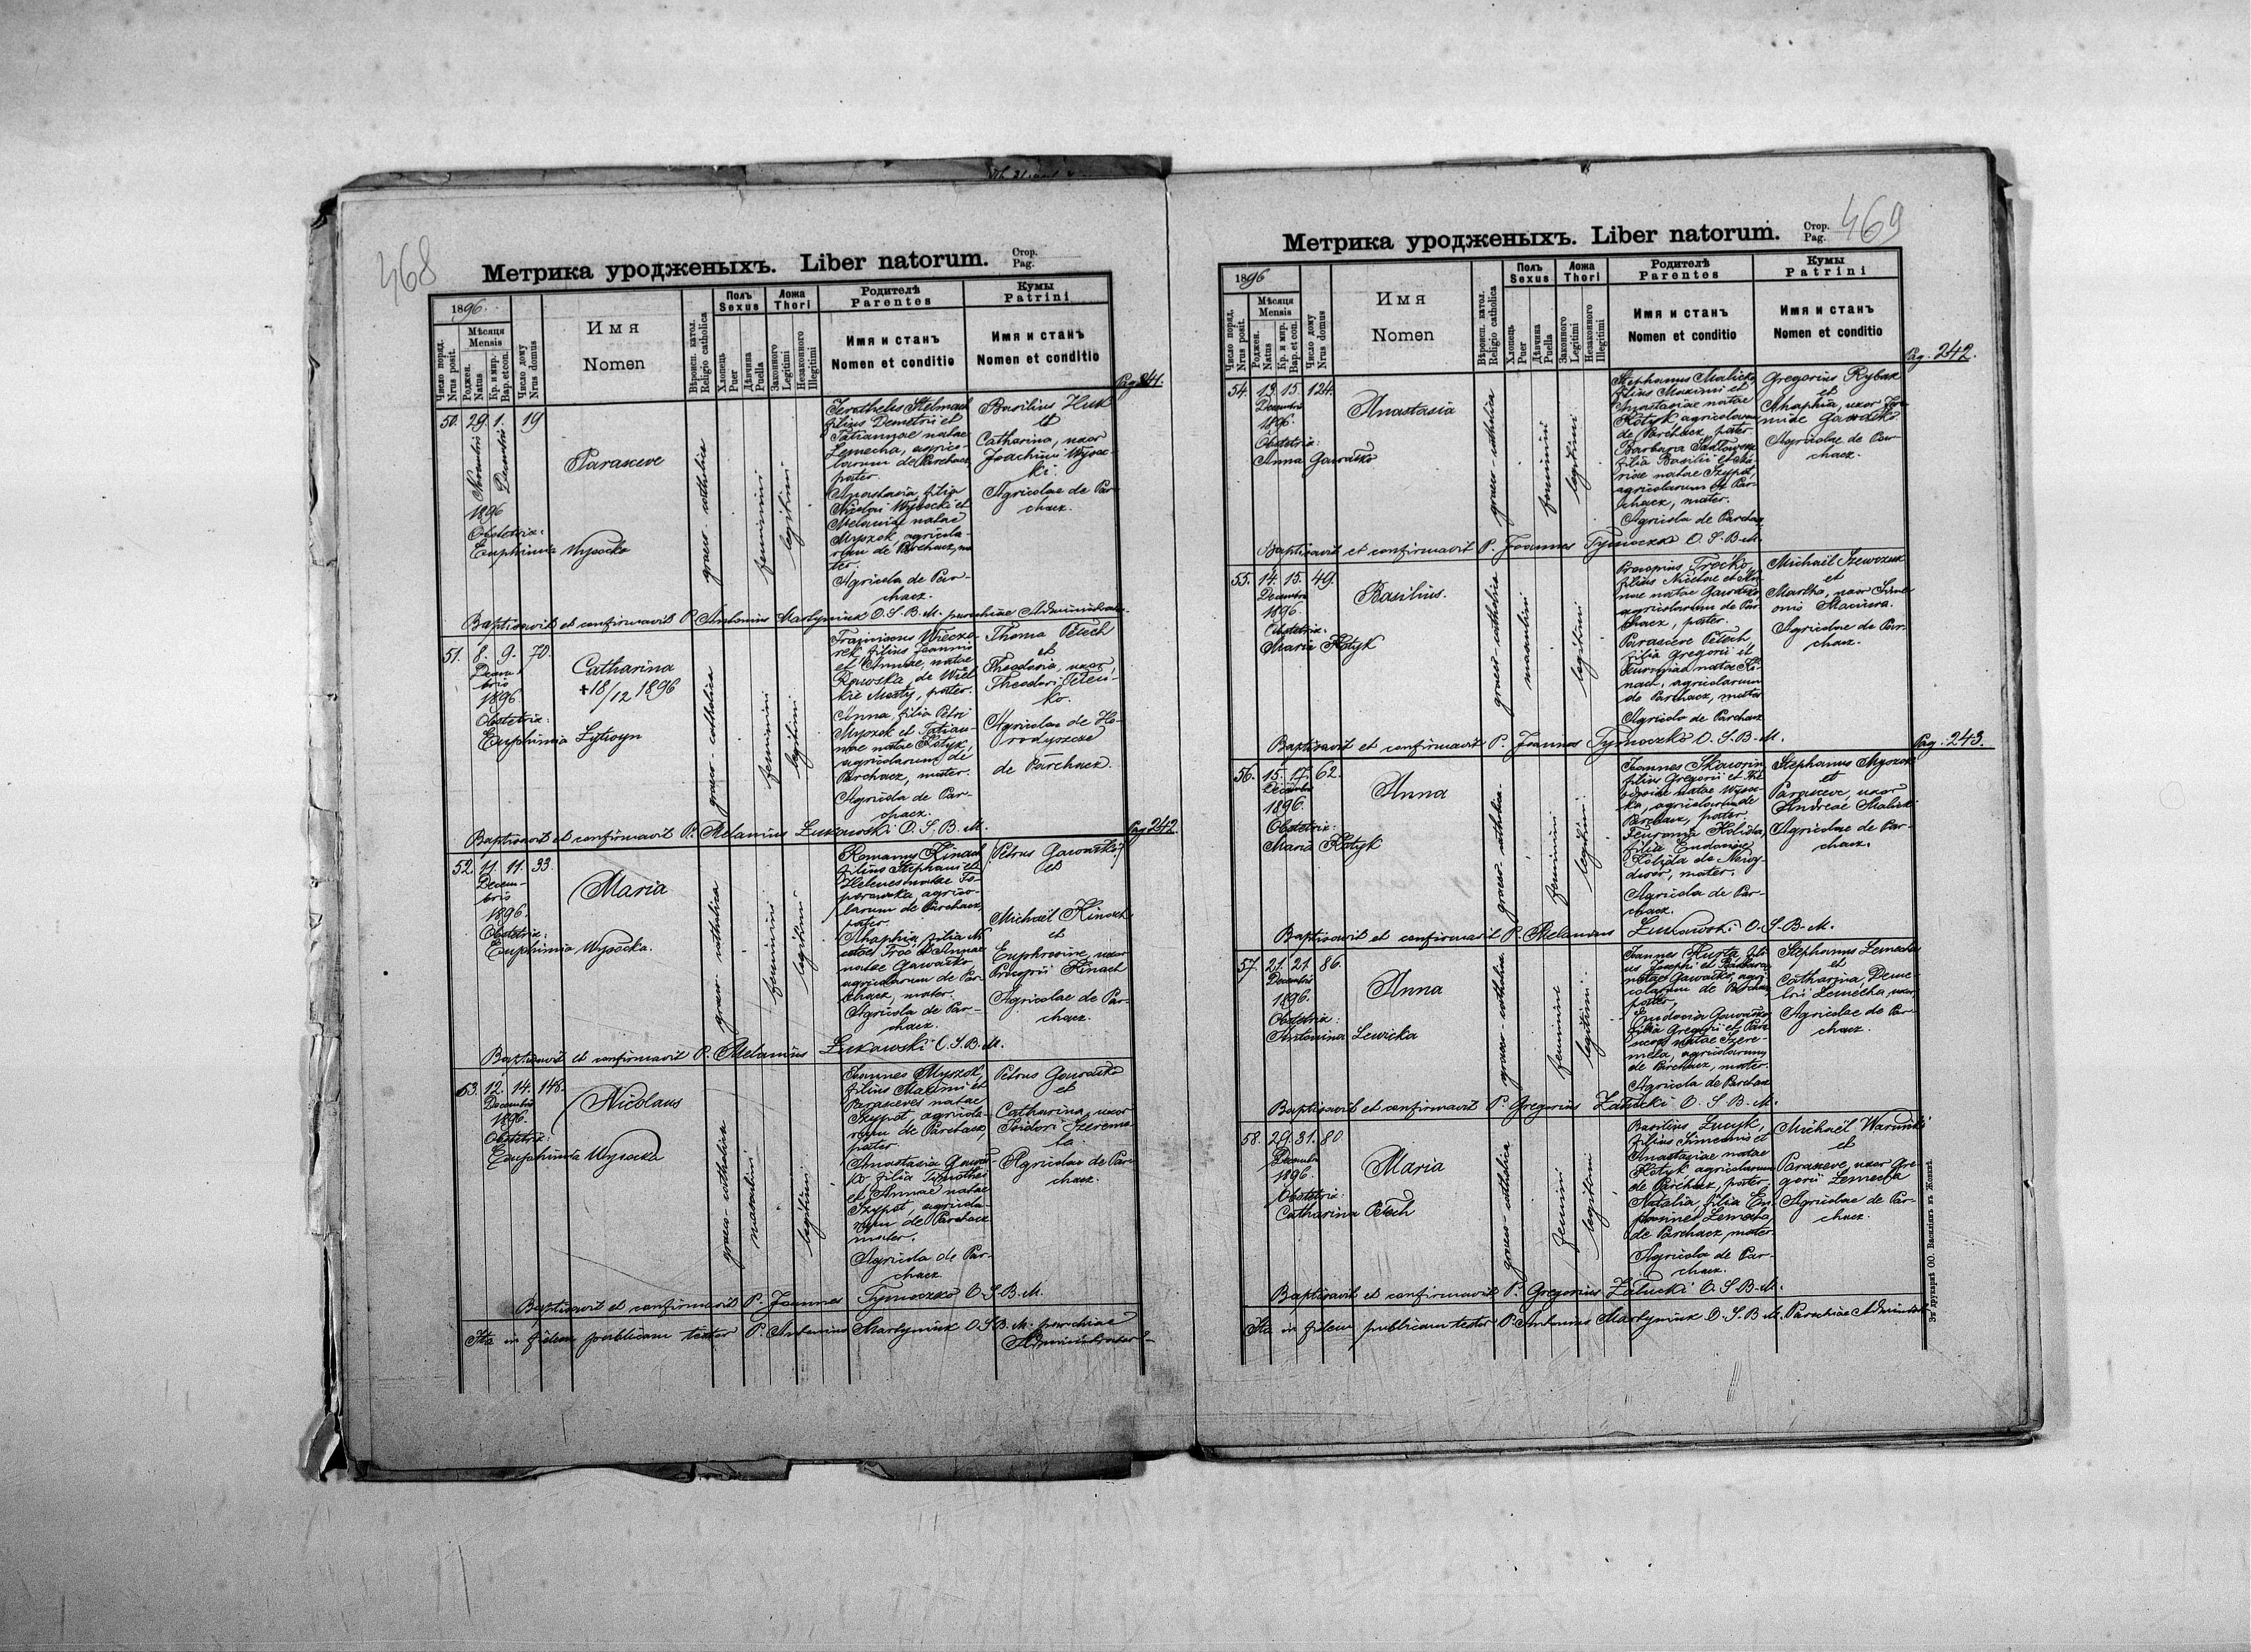 468
Метрика уродженыхъ. Liber natorum.
Стор.
Pag.
1896.
Число поряд.
Nrus posit.
Мѣсяця
Mensis
Роджен.
Natus
Кр. и мир.
Bap. et con.
Число дому
Nrus domus
Имя
Nomen
Вѣроисп. катол.
Religio catholica
Полъ
Sexus
Хлопець
Puer
Дѣвчина
Puella
Ложа
Thori
Законного
Legitimi
Незаконного
Illegitimi
Родителѣ
Parentes
Имя и станъ
Nomen et conditio
Кумы
Patrini
Имя и станъ
Nomen et conditio
Pag. 241.
50. 29. 1. 19
Novembris
Decembris
1896
Obstetrix:
Euphimia Wysocka
Parasceve
graeco-catholica
feminini
legitimi
Stelmach
filius Demetrii et
Tatiannae natae
Lemecha, agrico-
larum de Parchacz,
pater.
Anastasia, filia
Nicolai Wysocki et
Melaniae natae
Myszok, agricola-
rum de Parchacz, ma-
ter.
Agricola de Par-
chacz.
Basilius Huk
et
Catharina, uxor
Joachimi Wysoc-
ki.
Agricolae de Par-
chacz.
Baptisavit et confirmavit P. Antonius Martyniuk O. S. B. M. parochiae Administrator.
51. 8. 9. 70.
Decem-
bris
1896
Obstetrix:
Euphimia Lytwyn
Catharina
+ 18/12 1896
graeco-catholica
feminini
legitimi
filius Joannis
et Annae, natae
de Wiel-
kie Mosty, pater.
Anna, filia Petri
Myszok et Tatian-
nae natae Kotyk,
agricolarum de
Parchacz, mater.
Agricola de Par-
chacz.
Thoma Petech
et
Theodosia, uxor
Theodori
Agricolae de Ho-
rodyszcze
de Parchacz.
Baptisavit et confirmavit P. Melanius Lukowski O. S. B. M.
Pag. 242
52. 11. 11. 33.
Decem-
bris
1896.
Obstetrix:
Euphimia Wysocka.
Maria
graeco-catholica
feminini
legitimi
Romanus Kinach
filius Stephani et
Helenes natae To-
porowska, agrico-
larum de Parchacz,
pater.
Ahaphia, filia Ni-
cetae Troć et Annae
natae Gawaćko,
agricolarum de Par-
chacz, mater.
Agricola de Par-
chacz.
Petrus Gawaćko
et
Michaël Kinach
et
Euphrosine, uxor
Kinach
Agricolae de Par-
chacz.
Baptisavit et confirmavit P. Melanius Lukowski O. S. B. M.
53. 12. 14. 146.
Decembris
1896.
Obstetrix:
Euphimia Wysocka
Nicolaus
graeco-catholica
masculini
legitimi
Joannes Myszok,
filius Maximi et
Parasceves natae
Szypot, agricola-
rum de Parchacz,
pater.
Anastasia Gawać-
ko, filia Timothei
et Annae natae
Szypot, agricola-
rum de Parchacz
mater.
Agricola de Par-
chacz
Petrus Gawaćko
et
Catharina, uxor
Isidori Szereme-
ta.
Agricolae de Par-
chacz.
Baptisavit et confirmavit P. Joannes Tymoczko O. S. B. M.
Ita in fidem publicam testor P. Antonius Martyniuk O. S. B. M. parochiae
Administrator
469
Метрика уродженыхъ. Liber natorum.
Стор.
Pag.
1896
Число поряд.
Nrus posit.
Мѣсяця
Mensis
Роджен.
Natus
Кр. и мир.
Bap. et con.
Число дому
Nrus domus
Имя
Nomen
Вѣроисп. катол.
Religio catholica
Полъ
Sexus
Хлопець
Puer
Дѣвчина
Puella
Ложа
Thori
Законного
Legitimi
Незаконного
Illegitimi
Родителѣ
Parentes
Имя и станъ
Nomen et conditio
Кумы
Patrini
Имя и станъ
Nomen et conditio
Pag. 242.
54. 13. 15. 124.
Decembris
1896.
Obstetrix:
Anna Gawaćko
Anastasia
graeco-catholica
feminini
legitimi
Stephanus Malicki,
filius Maximi et
Anastasiae natae
Kotyk, agricolarum
de Parchacz, pater
Barbara
filia Basilii et Ma-
riae natae Szypot,
agricolarum de Par-
chacz, mater.
Agricola de Parchacz
Gregorius Rybak
et
Ahaphia, uxor
Gawaćko
Agricolae de Par-
chacz.
Baptisavit et confirmavit P. Joannes Tymoczko O. S. B. M.
55. 14. 15. 49.
Decembris
1896.
Obstetrix:
Maria Kotyk
Basilius.
graeco-catholica
masculini
legitimi
Procopius Troćko,
filius Nicetae et An-
nae natae Gawaćko
agricolarum de Par-
chacz, pater.
Parasceve Petech
filia Gregorii et
natae Ki-
nach, agricolarum
de Parchacz, mater
Agricola de Parchacz
Michaël Szewczuk
et
Martha, uxor Sime-
onis Maciura.
Agricolae de Par-
chacz.
Baptisavit et confirmavit P. Joannes Tymoczko O. S. B. M.
Pag. 243.
56. 15. 17. 62.
Decembris
1896.
Obstetrix:
Maria Kotyk
Anna
graeco-catholica
feminini
legitimi
Joannes
filius Gregorii et
natae Wysoc-
ka, agricolarum de
Parchacz, pater.
Kolida,
filia Eudociae
Kolida de
mater.
Agricola de Par-
chacz.
Stephanus Myszok
et
Parasceve, uxor
Andreae Malicki
Agricolae de Par-
chacz.
Baptisavit et confirmavit P. Melanius Lukowski O. S. B. M.
57. 21. 21. 86.
Decembris
1896.
Obstetrix:
Antonina Lewicka
Anna
graeco-catholica
feminini
legitimi
Joannes Hurta fili-
us Josephi et Barbarae
natae Gawaćko, agri-
colarum de Parchacz,
pater,
Eudocia Gawaćko
filia Gregorii et Para-
sceves natae Szere-
meta, agricolarum
de Parchacz, mater.
Agricola de Parchacz
Stephanus Lemecha
et
Catharina, Deme-
trii Lemecha, uxor
Agricolae de Par-
chacz.
Baptisavit et confirmavit P. Gregorius Załucki O. S. B. M.
58. 29. 31. 80.
Decembris
1896.
Obstetrix:
Catharina Petech
Maria
graeco-catholica
feminini
legitimi
Basilius Lucyk,
filius Simeonis et
Anastasiae natae
Kotyk agricolarum
de Parchacz, pater.
Natalia, filia Eu-
Lemecha,
de Parchacz, mater
Agricola de Par-
chacz.
Michaël
et
Parasceve, uxor Gre-
gorii Lemecha
Agricolae de Par-
chacz.
Baptisavit et confirmavit P. Gregorius Załucki O. S. B. M.
Ita in fidem publicam testor P. Antonius Martyniuk O. S. B. M. Parochiae Administrator
Зъ друкарнѣ ОО. Василіянъ въ Жовквѣ.